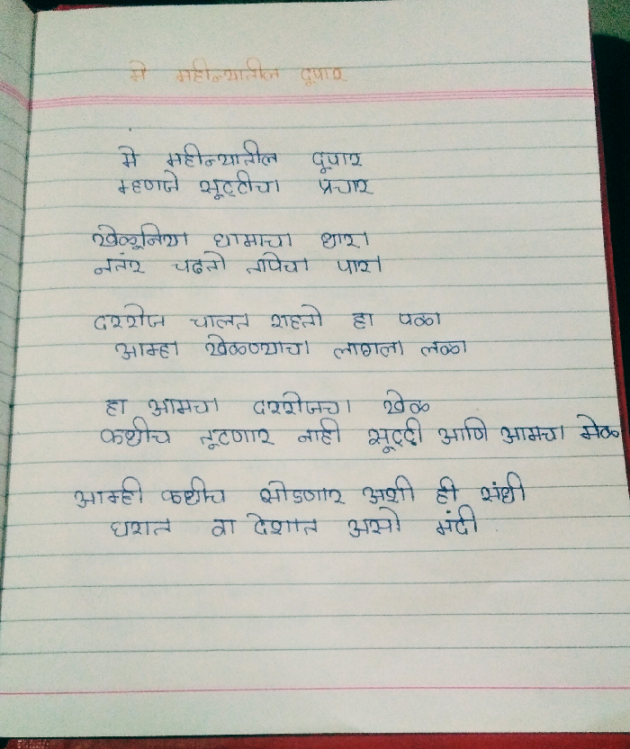 मे महीन्यातील दूपार
मे महीन्यातील दूपार
म्हणजे सूट्टीचा प्रचार
खेळूनिया घामाचा धारा
नतंर चढतो तापेचा पारा
दररोज चालत राहतो हा पळा
आम्हा खेळण्याचा लागला लळा
हा आमचा दररोजचा खेळ
कधीच तूटणार नाही सूट्टी आणि आमचा मेळ
आम्ही कधीच सोडणार अशी ही संधी
घरात वा देशात असो मंदी